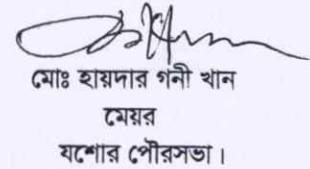 মোঃ হায়দার গনী খান
মেয়র
যশোর পৌরসভা।